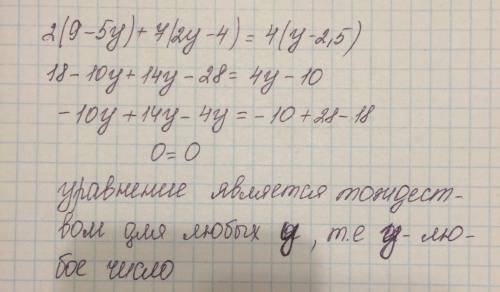 2(9-5y)+7(2y-4)=4(y-2,5)
18-10y+14y-28=4y-10
-10y+14y-4y=-10+28-18
0=0
уравнение является тождест-
вом для любых y, т.е y-лю-
бое число